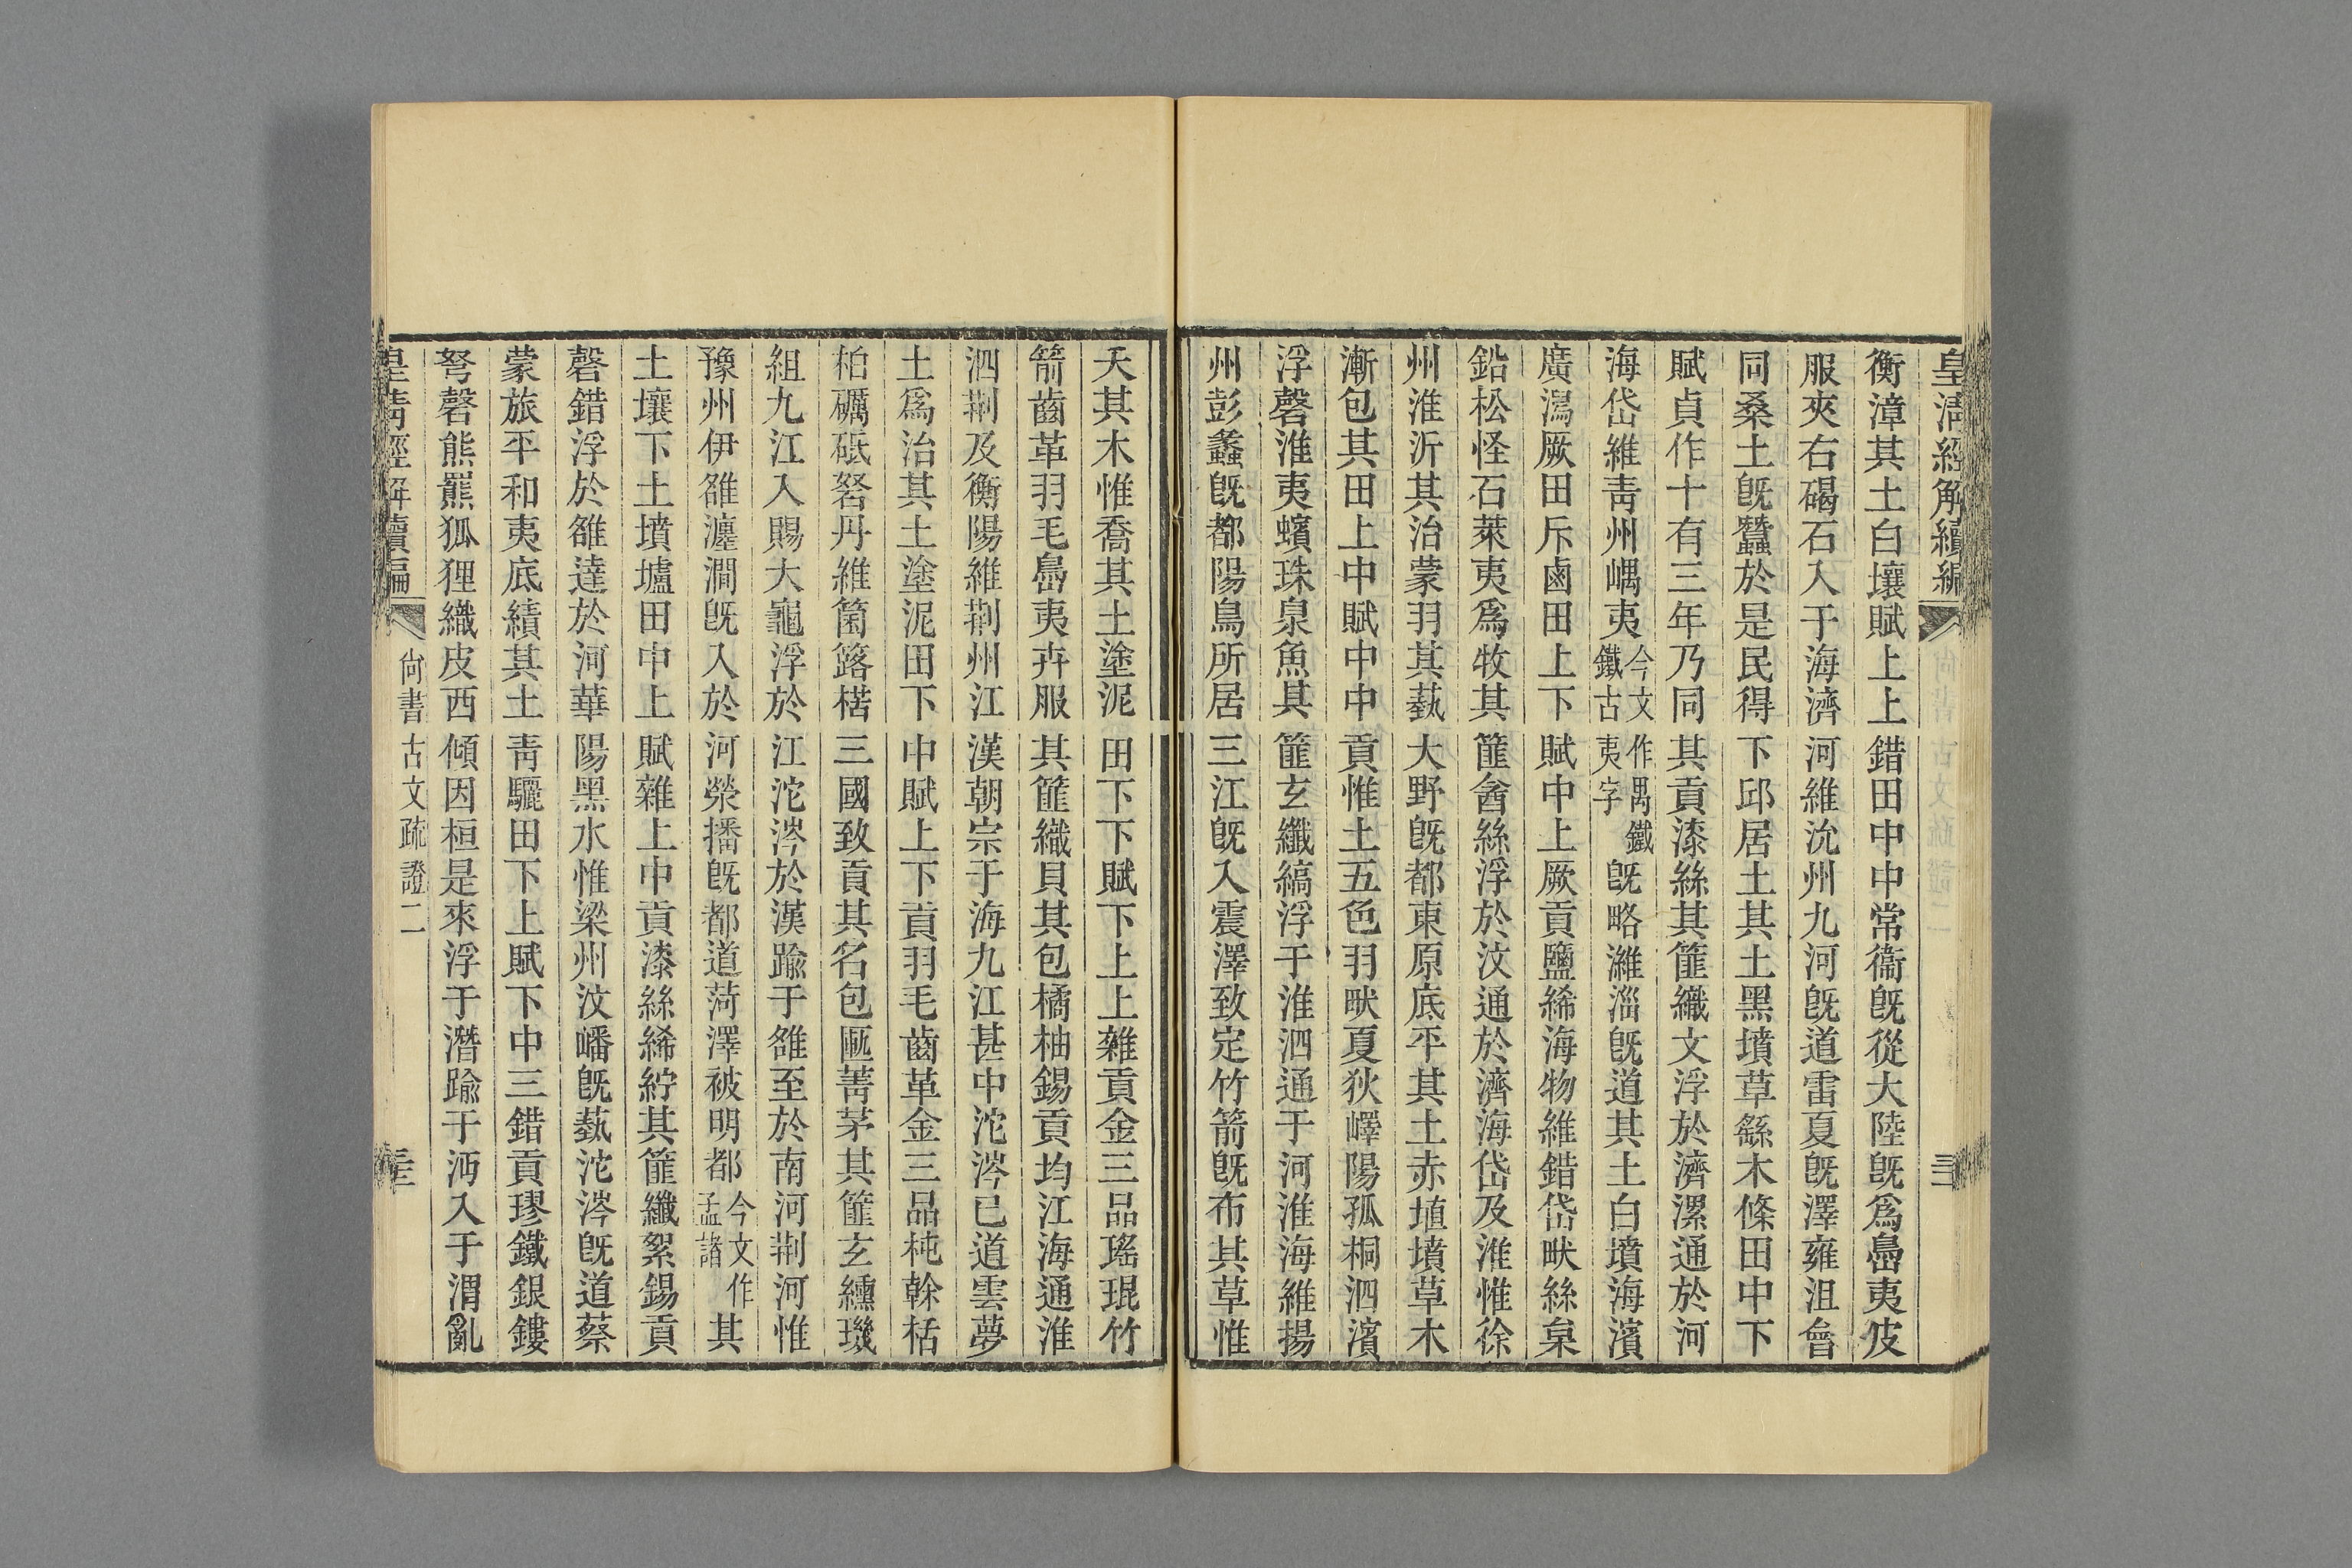 皇清經解續編
三
衡漳其土白壤賦上上錯田中中常衞旣從大陸旣爲島夷皮
服夾右碣石入于海濟河維沇州九河旣道雷夏旣澤雍沮會
同桑土旣蠶於是民得下邱居土其土黑墳草繇木條田中下
賦貞作十有三年乃同其貢漆絲其篚織文浮於濟漯通於河
海岱維靑州嵎夷今文作禺鐵鐵古夷字旣略濰淄旣道其土白墳海濱
廣潟厥田斥鹵田上下賦中上厥貢鹽絺海物維錯岱畎絲枲
鉛松怪石萊夷爲牧其篚酓絲浮於汶通於濟海岱及淮惟徐
州淮沂其治蒙羽其蓺大野旣都東原底平其土赤埴墳草木
漸包其田上中賦中中貢惟土五色羽畎夏狄嶧陽孤桐泗濱
浮磬淮夷蠙珠泉魚其篚玄纖縞浮于淮泗通于河淮海維揚
州彭蠡旣都陽鳥所居三江旣入震澤致定竹箭旣布其草惟
夭其木惟喬其土塗泥田下下賦下上上雜貢金三品瑤琨竹
箭齒革羽毛島夷卉服其篚織貝其包橘柚錫貢均江海通淮
泗荆及衡陽維荆州江漢朝宗于海九江甚中沱涔已道雲夢
土爲治其土塗泥田下中賦上下貢羽毛齒革金三品杶榦栝
柏礪砥砮丹維箘簬楛三國致貢其名包匭菁茅其篚玄纁璣
組九江入賜大龜浮於江沱涔於漢踰于雒至於南河荆河惟
豫州伊雒瀍澗旣入於河滎播旣都道菏澤被明都今文作孟諸其
土壤下土墳壚田中上賦雜上中貢漆絲絺紵其篚纖絮錫貢
磬錯浮於雒達於河華陽黑水惟梁州汶嶓旣蓺沱涔旣道蔡
蒙旅平和夷底績其土靑驪田下上賦下中三錯貢璆鐵銀鏤
砮磬熊羆狐狸織皮西傾因桓是來浮于潛踰于沔入于渭亂
皇淸經解續編
尙書古文疏證二